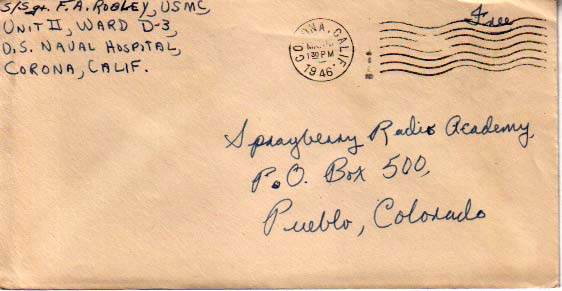 S/Sgt. F.A. ROBLEY, USMC
UNIT II, WARD D-3,
U.S. NAVAL HOSPITAL,
CORONA, CALIF.
CORONA, CALIF.
130 PM
1946
Free
Sprayberry Radio Academy,
P.O. Box 500,
Pueblo, Colorado